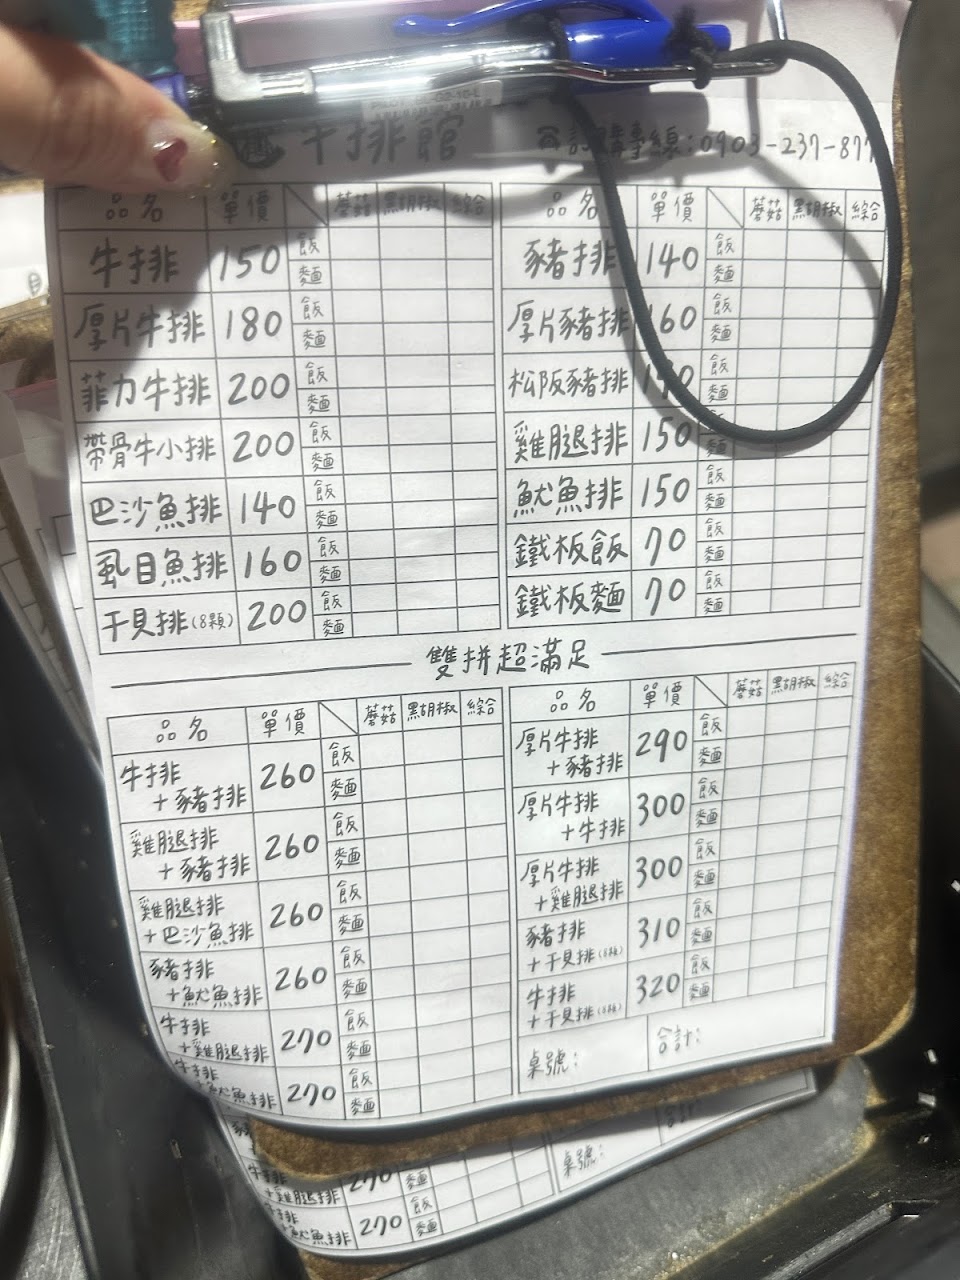 牛排館
訂購專線：0903-237-877
品名 單價 蘑菇 黑胡椒 綜合
牛排 150 飯 麵
厚片牛排 180 飯 麵
菲力牛排 200 飯 麵
帶骨牛小排 200 飯 麵
巴沙魚排 140 飯 麵
虱目魚排 160 飯 麵
干貝排(8顆) 200 飯 麵
品名 單價 蘑菇 黑胡椒 綜合
豬排 140 飯 麵
厚片豬排 160 飯 麵
松阪豬排 飯 麵
雞腿排 150 飯 麵
魷魚排 150 飯 麵
鐵板飯 70 飯 麵
鐵板麵 70 飯 麵
雙拼超滿足
品名 單價 蘑菇 黑胡椒 綜合
牛排
+豬排 260 飯 麵
雞腿排
+豬排 260 飯 麵
雞腿排
+巴沙魚排 260 飯 麵
豬排
+魷魚排 260 飯 麵
牛排
+雞腿排 270 飯 麵
牛排
魷魚排 270 飯 麵
品名 單價 蘑菇 黑胡椒 綜合
厚片牛排
+豬排 290 飯 麵
厚片牛排
+牛排 300 飯 麵
厚片牛排
+雞腿排 300 飯 麵
豬排
+干貝排 310 飯 麵
牛排
+干貝排 320 飯 麵
桌號： 合計：
牛排
+雞腿排 270 麵
牛排
+魷魚排 270 飯 麵
桌號：